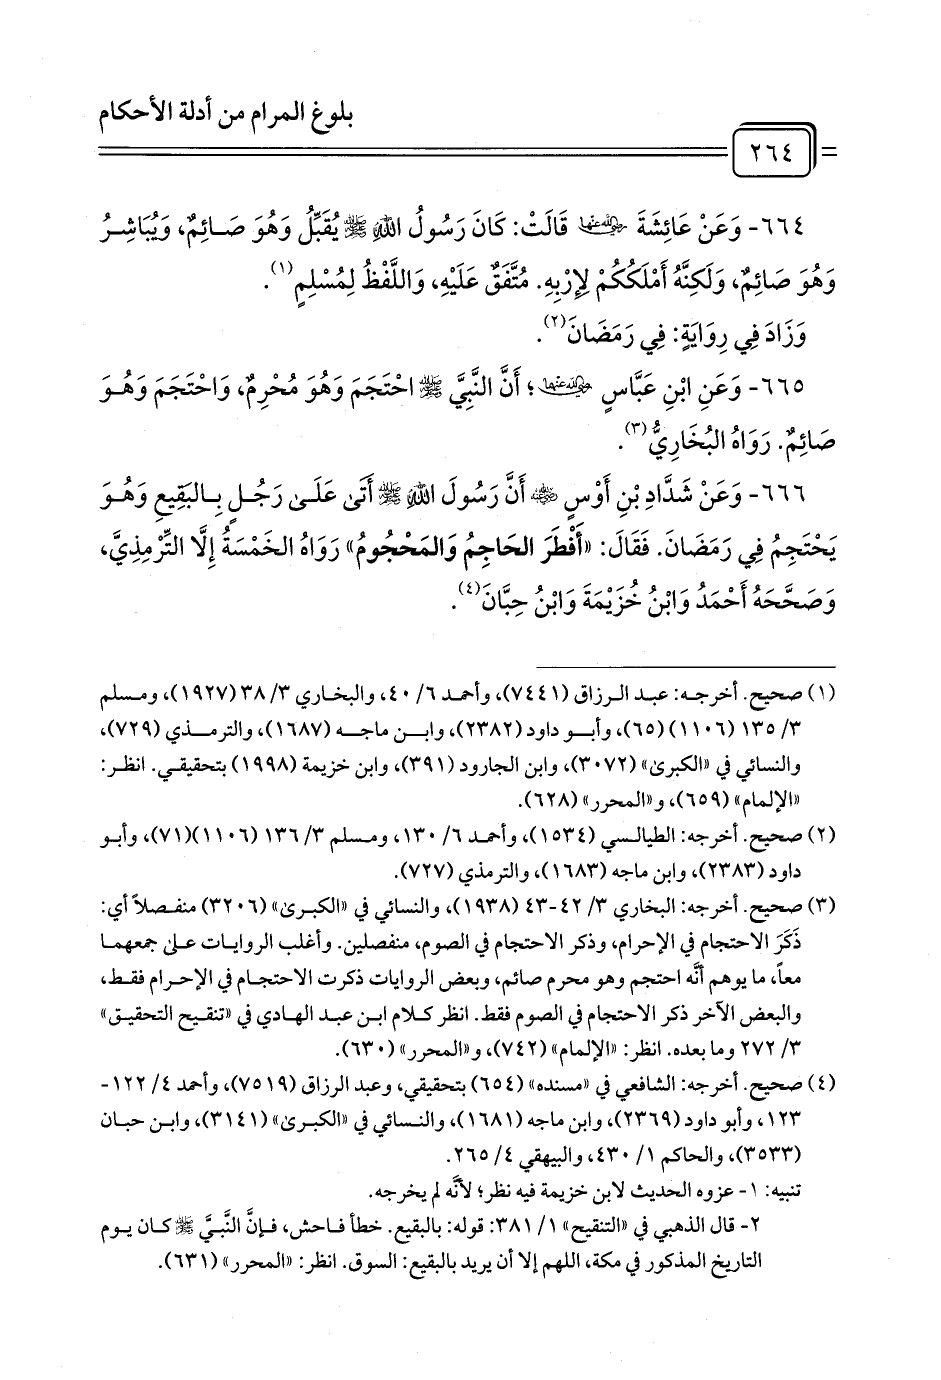 بلوغ المرام من أدلة الأحكام
٢٦٤
٦٦٤- وَعَنْ عَائِشَةَ رضي الله عنها قَالَتْ: كَانَ رَسُولُ اللهِ ﷺ يُقَبِّلُ وَهُوَ صَائِمٌ، وَيُبَاشِرُ
وَهُوَ صَائِمٌ، وَلَكِنَّهُ أَمْلَكُكُمْ لِإِرْبِهِ. مُتَّفَقٌ عَلَيْهِ، وَاللَّفْظُ لِمُسْلِمٍ(١).
وَزَادَ فِي رِوَايَةٍ: فِي رَمَضَانَ(٢).
٦٦٥- وَعَنِ ابْنِ عَبَّاسٍ رضي الله عنهما؛ أَنَّ النَّبِيَّ ﷺ احْتَجَمَ وَهُوَ مُحْرِمٌ، وَاحْتَجَمَ وَهُوَ
صَائِمٌ. رَوَاهُ البُخَارِيُّ(٣).
٦٦٦- وَعَنْ شَدَّادِ بْنِ أَوْسٍ رضي الله عنه أَنَّ رَسُولَ اللهِ ﷺ أَتَى عَلَى رَجُلٍ بِالبَقِيعِ وَهُوَ
يَحْتَجِمُ فِي رَمَضَانَ. فَقَالَ: «أَفْطَرَ الحَاجِمُ وَالمَحْجُومُ» رَوَاهُ الخَمْسَةُ إِلَّا التِّرْمِذِيَّ،
وَصَحَّحَهُ أَحْمَدُ وَابْنُ خُزَيْمَةَ وَابْنُ حِبَّانَ(٤).
(١) صحيح. أخرجه: عبد الرزاق (٧٤٤١)، وأحمد ٦/ ٤٠، والبخاري ٣/ ٣٨ (١٩٢٧)، ومسلم
٣/ ١٣٥ (١١٠٦) (٦٥)، وأبو داود (٢٣٨٢)، وابن ماجه (١٦٨٧)، والترمذي (٧٢٩)،
والنسائي في «الكبرى» (٣٠٧٢)، وابن الجارود (٣٩١)، وابن خزيمة (١٩٩٨) بتحقيقي. انظر:
«الإلمام» (٦٥٩)، و«المحرر» (٦٢٨).
(٢) صحيح. أخرجه: الطيالسي (١٥٣٤)، وأحمد ٦/ ١٣٠، ومسلم ٣/ ١٣٦ (١١٠٦)(٧١)، وأبو
داود (٢٣٨٣)، وابن ماجه (١٦٨٣)، والترمذي (٧٢٧).
(٣) صحيح. أخرجه: البخاري ٣/ ٤٢-٤٣ (١٩٣٨)، والنسائي في «الكبرى» (٣٢٠٦) منفصلاً أي:
ذَكَرَ الاحتجام في الإحرام، وذكر الاحتجام في الصوم، منفصلين. وأغلب الروايات على جمعهما
معاً، ما يوهم أنَّه احتجم وهو محرم صائم، وبعض الروايات ذكرت الاحتجام في الإحرام فقط،
والبعض الآخر ذكر الاحتجام في الصوم فقط. انظر كلام ابن عبد الهادي في «تنقيح التحقيق»
٣/ ٢٧٢ وما بعده. انظر: «الإلمام» (٧٤٢)، و«المحرر» (٦٣٠).
(٤) صحيح. أخرجه: الشافعي في «مسنده» (٦٥٤) بتحقيقي، وعبد الرزاق (٧٥١٩)، وأحمد ٤/ ١٢٢-
١٢٣، وأبو داود (٢٣٦٩)، وابن ماجه (١٦٨١)، والنسائي في «الكبرى» (٣١٤١)، وابن حبان
(٣٥٣٣)، والحاكم ١/ ٤٣٠، والبيهقي ٤/ ٢٦٥.
تنبيه: ١- عزوه الحديث لابن خزيمة فيه نظر؛ لأنَّه لم يخرجه.
٢- قال الذهبي في «التنقيح» ١/ ٣٨١: قوله: بالبقيع. خطأ فاحش، فإنَّ النَّبيَّ ﷺ كان يوم
التاريخ المذكور في مكة، اللهم إلا أن يريد بالبقيع: السوق. انظر: «المحرر» (٦٣١).